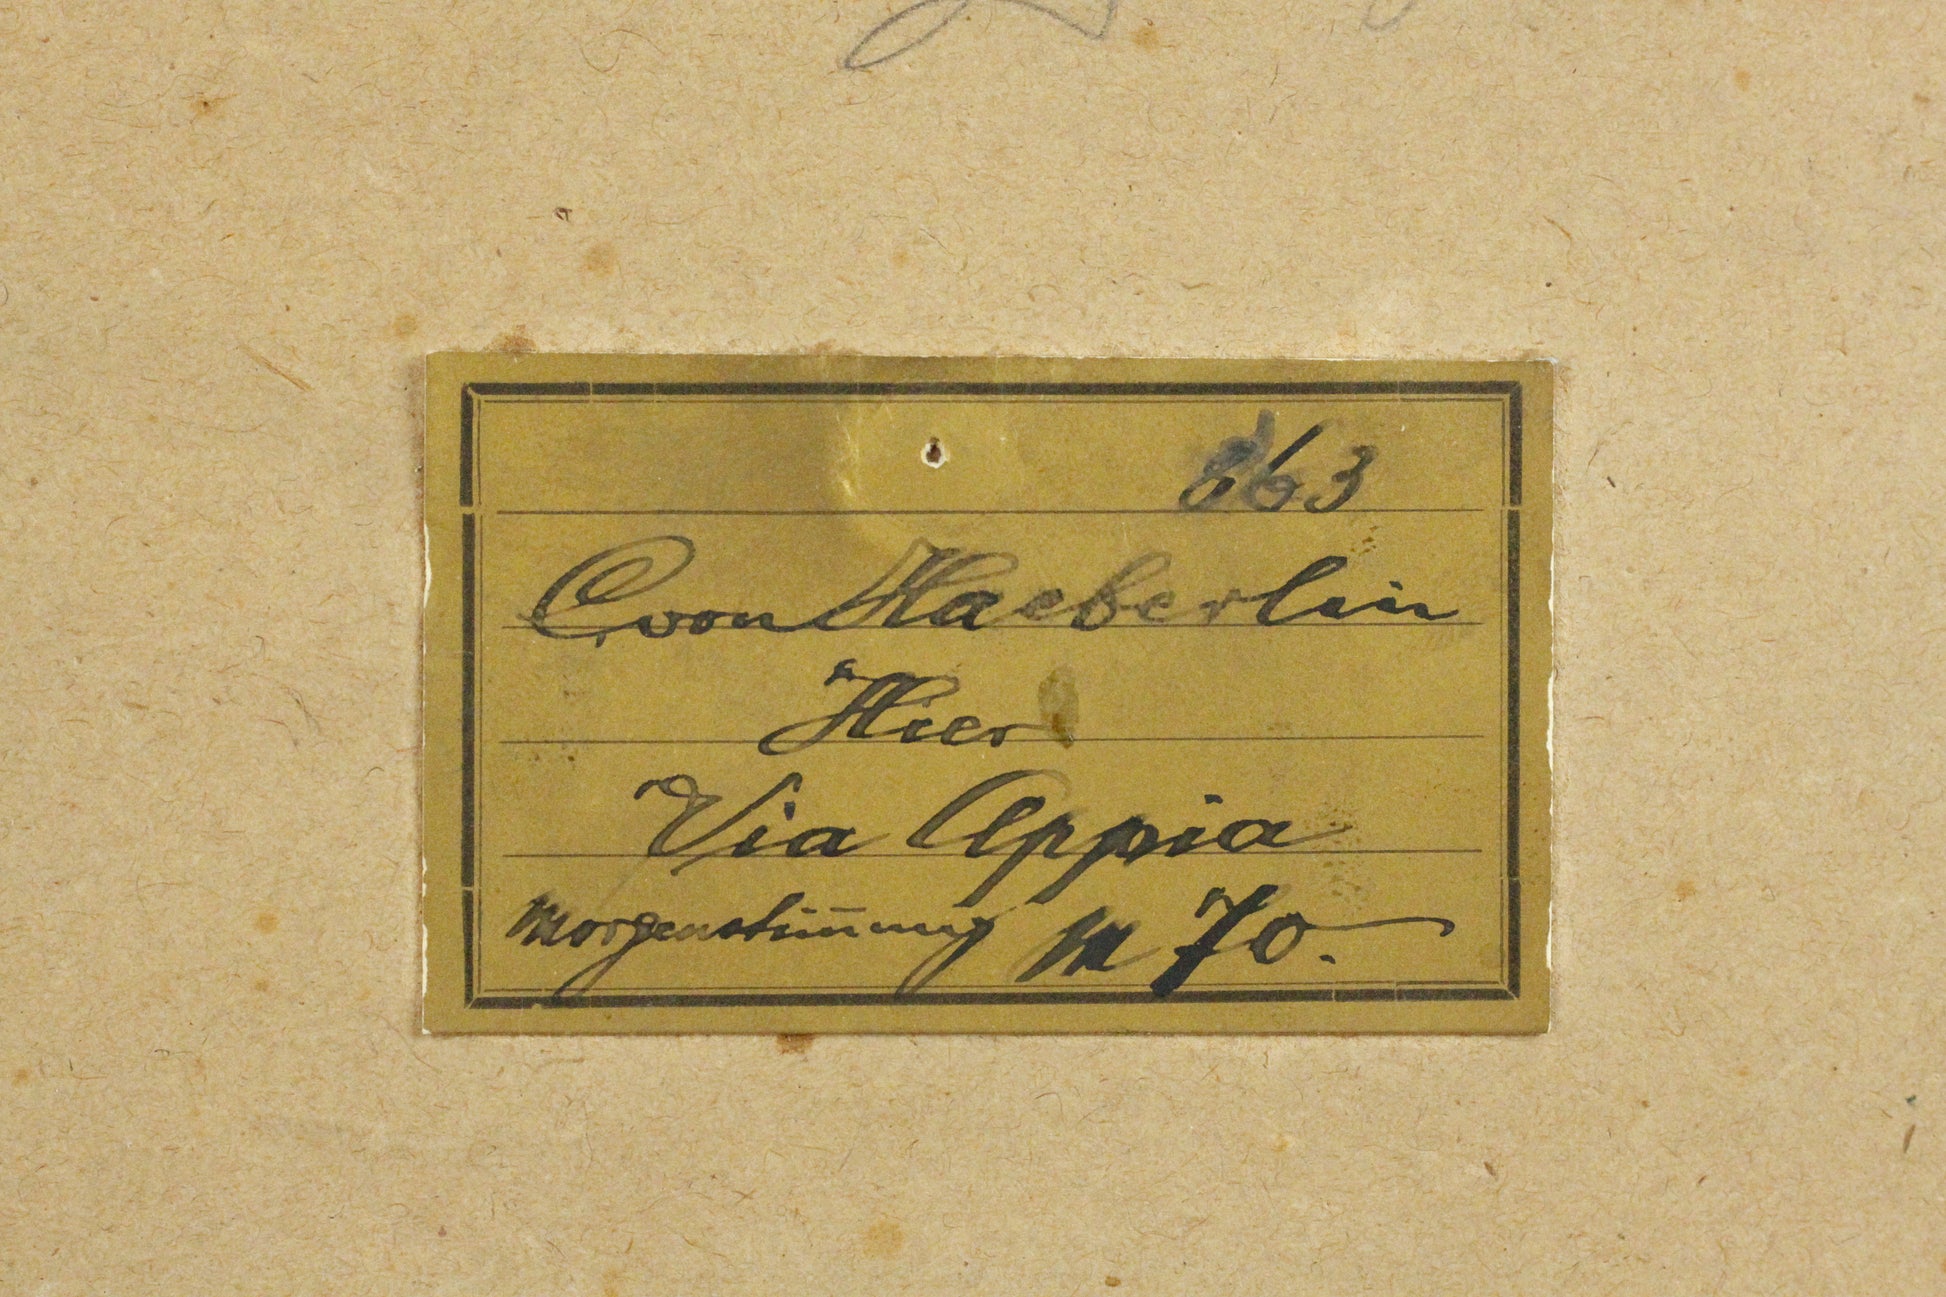 863
C. von Haeberlin
Hier
Via Appia
Morgenstim̄ung M 70.